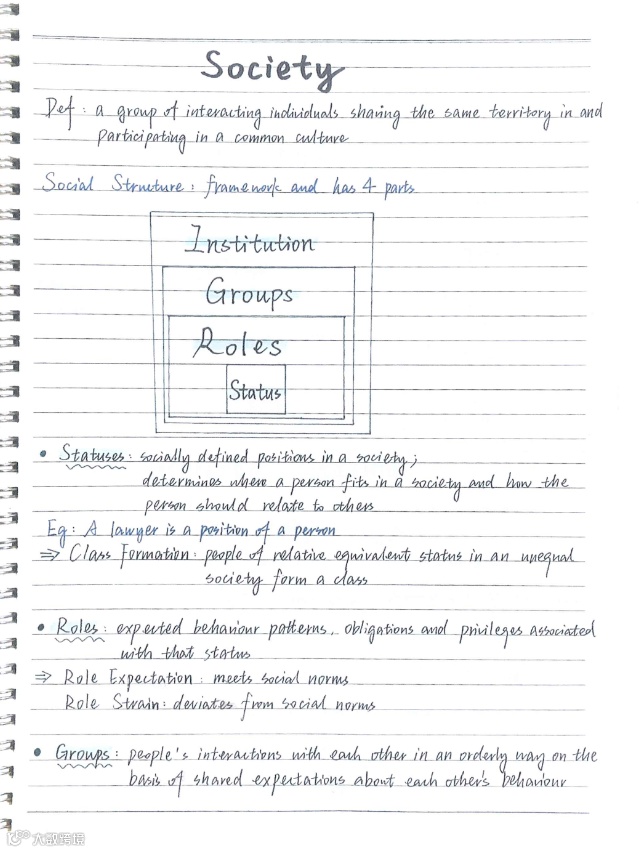 Society
Def: a group of interacting individuals sharing the same territory in and
participating in a common culture
Social Structure: framework and has 4 parts
Institution
Groups
Roles
Status
• Statuses: socially defined positions in a society;
determines where a person fits in a society and how the
person should relate to others
Eg: A lawyer is a position of a person
⇒ Class Formation: people of relative equivalent status in an unequal
society form a class
• Roles: expected behaviour patterns, obligations and privileges associated
with that status
⇒ Role Expectation: meets social norms
Role Strain: deviates from social norms
• Groups: people's interactions with each other in an orderly way on the
basis of shared expectations about each other's behaviour
大数跨境